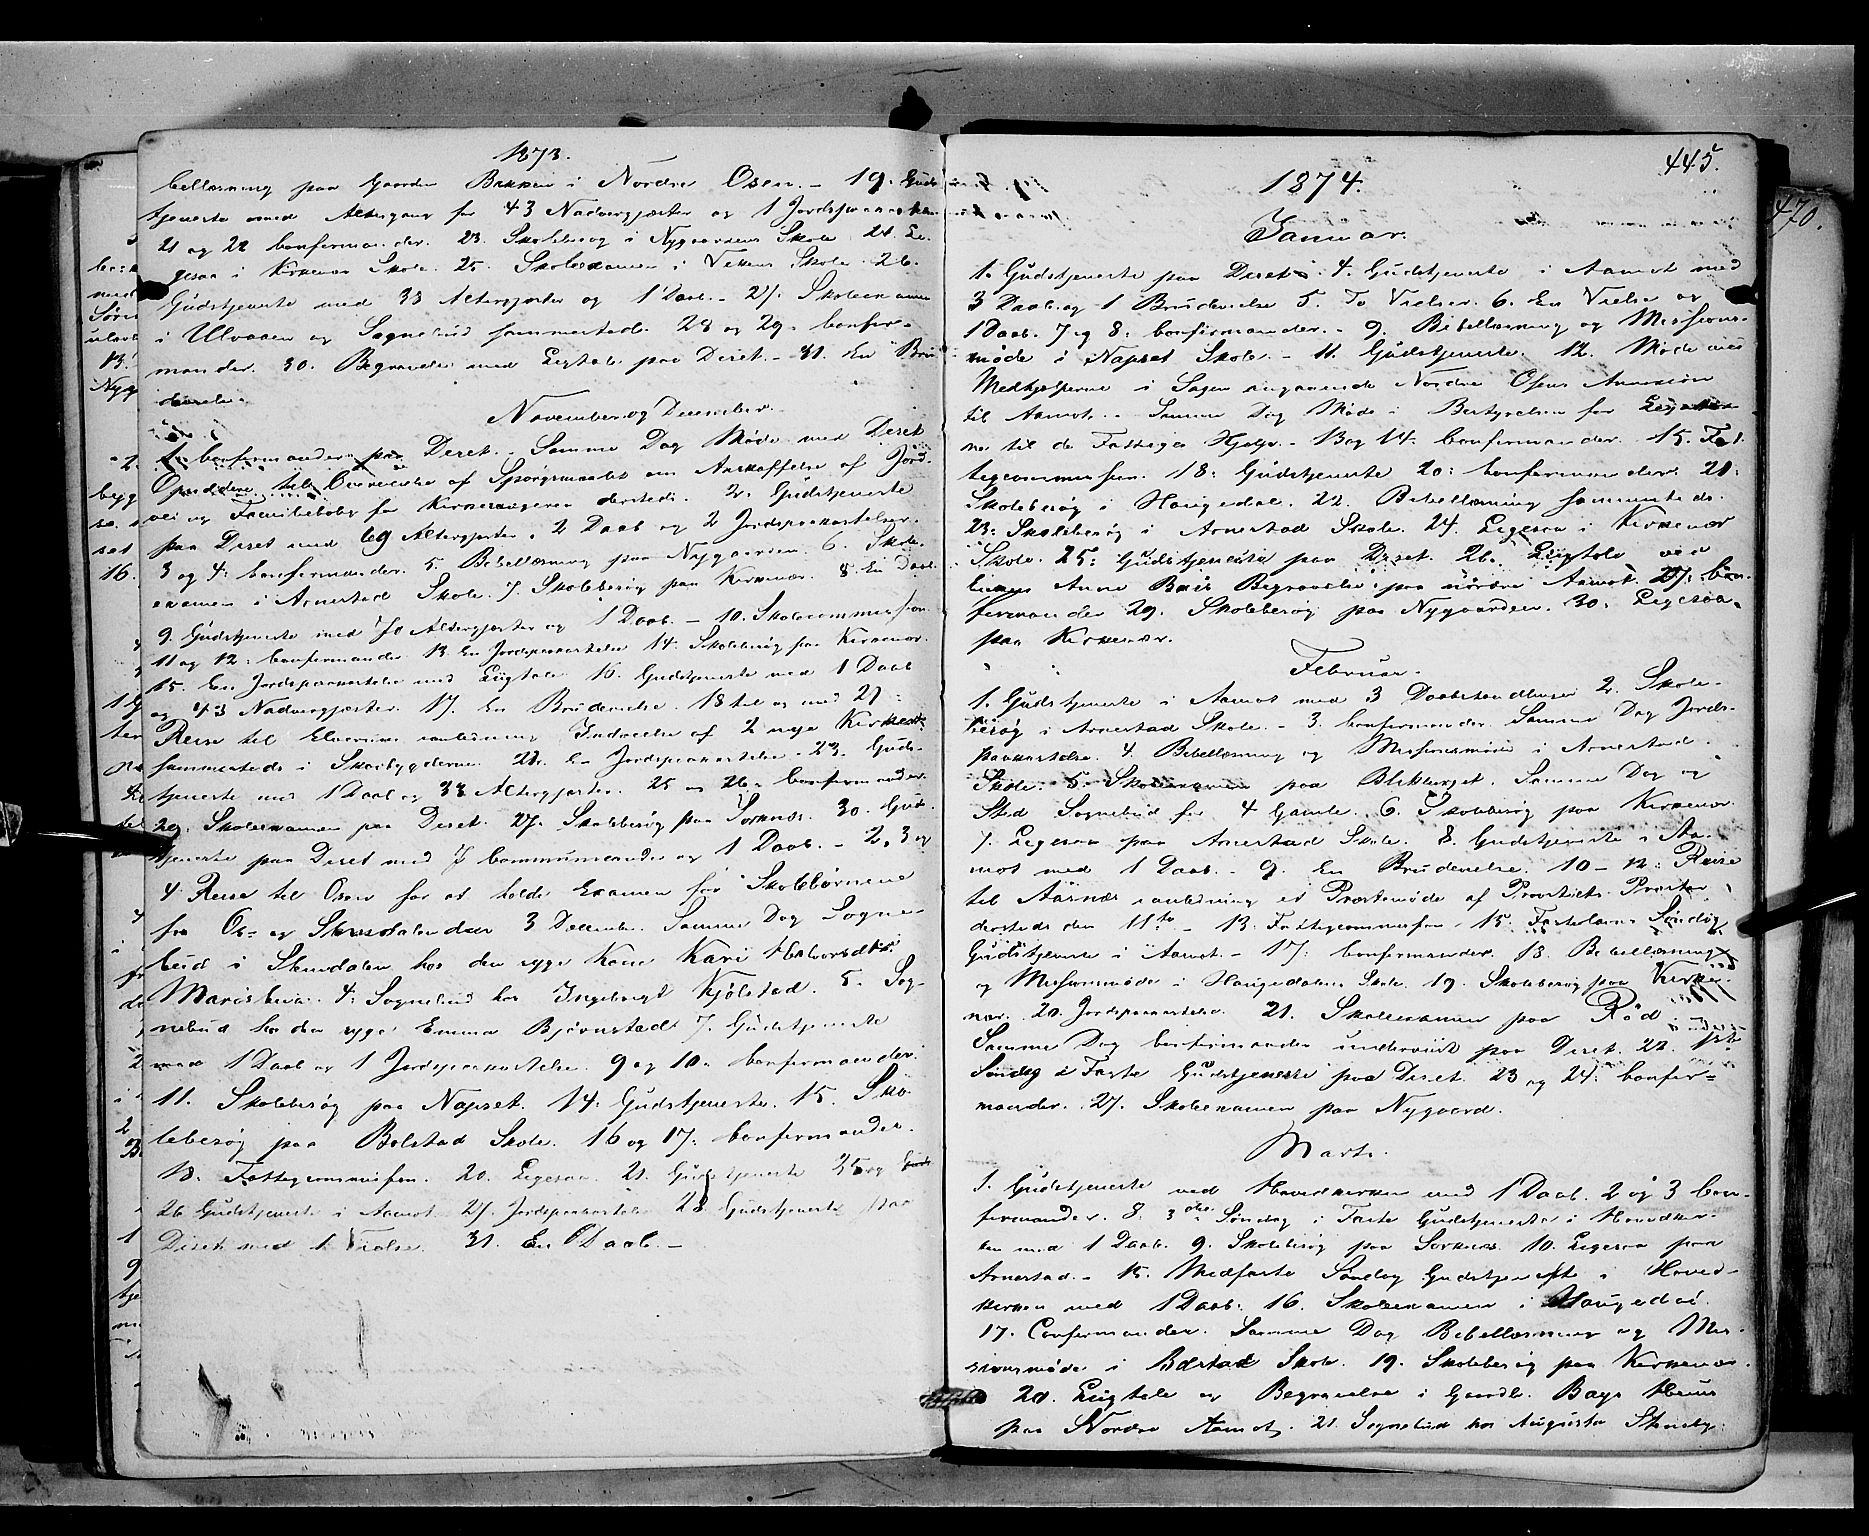 1873.
bellæsning paa Gaarden Bakken i Nordre Osen. - 19. Guds
tjeneste med Altergang for 43 Nadvergjæster og 1 Jordspaakastelse
21 og 22 Confirmander. 23. Skolebesøg i Nygaardens Skole 24. Li-
gesaa i Kirkenær Skole. 25. Skoleexamen i Skole 26.
Gudstjeneste med 33 Altergjæster og 1 Daab. - 27. Skoleexamen
i Ulvaaen og Sognebud sammesteds. 28 og 29. Confir-
mander. 30. Begravelse med Ligtale paa Deset. - 31. En Bru
devielse.
November og December.
1. Confirmander paa Deset. Samme Dag Møde med Deset
Opsiddere til af Spørgsmaalet om Anskaffelse af Jord-
vei og for Kirkesangeren dersteds. 2. Gudstjeneste
paa Deset med 69 Altergjæster, 2 Daab og 2 Jordspaakastelser.
3 og 4. Confirmander. 5. Bibellæsning paa Nygaarden. 6. Skole-
examen i Arnestad Skole. 7. Skolebesøg paa Kirkenær. 8. En Daab
9. Gudstjeneste med 70 Altergjæster og 1 Daab. - 10. Skolecommission
11 og 12. Confirmander 13. En Jordspaakastelse 14. Skolebesøg paa Kirkenær.
15. En Jordspaakastelse med Ligtale 16. Gudstjeneste med 1 Daab
og 43 Nadvergjæster. 17. En Brudevielse. 18 til og med 21
Reise til Elverum i anledning Indvielse af 2 nye Kirker
sammesteds i Skovbygderne. 22. En Jordspaakastelse - 23. Guds-
tjeneste med 1 Daab og 33 Altergjæster. 25 og 26. Confirmander
29. Skoleexamen paa Deset. 27. Skolebesøg paa Sorknæs. 30. Gud-
tjeneste paa Deset med 7 Communicander og 1 Daab. - 2, 3 og
4 Reise til Osen for at holde Examen for Skolebørnene
fra Os- og den 3 December. Samme Dag Sogne-
bud i hos den syge Kone Kari Halvorsdtr
4. Sognebud hos Ingeborg Kjølstad. 5. Sog-
nebud hos den syge Emma Bjørnstad. 7. Gudstjeneste
med 1 Daab og 1 Jordspaakastelse. 9 og 10. Confirmander.
11. Skolebesøg paa Napset. 14. Gudstjeneste. 15. Sko-
lebesøg paa Bolstad Skole. 16 og 17. Confirmander.
18. Fattigcommission. 20. Ligesaa. 21. Gudstjeneste 25 og
26 Gudstjeneste i Aamot 27. Jordspaakastelse 28 Gudstjeneste paa
Deset med 1 Vielse. 31. En Daab. -
445.
470.
1874.
Januar.
1. Gudstjeneste paa Deset. 4. Gudstjeneste i Aamot med
3 Daab og 1 Brudevielse 5. To Vielser. 6. En Vielse og
1 Daab. 7 og 8. Confirmander. - 9. Bibellæsning og Missions-
møde i Napset Skole. - 11. Gudstjeneste. 12. Møde med
Medhjelperne i Sagen angaaende Nordre Osens Annexion
til Aamot. - Samme Dag Møde i Bestyrelsen for
ne til de Fattiges Hjelp. - 13 og 14. Confirmander. 15. Fat-
tigcommission. 18. Gudstjeneste 20. Confirmander. 21.
Skolebesøg i Haugedal. 22. Bibellæsning sammesteds.
23. Skolebesøg i Arnestad Skole. 24. Ligesaa i Kirkenær
Skole. 25. Gudstjeneste paa Deset. 26. Ligtale ved
Anne Begravelse paa nordre Aamot. 27. Con-
firmander 29. Skolebesøg paa Nygaarden. 30. Ligesaa
paa Kirkenær.
Februar.
1. Gudstjeneste i Aamot med 3 Daabshandlinger 2. Skole-
besøg i Arnestad Skole. - 3. Confirmander. Samme Dag Jords-
paakastelse. 4. Bibellæsning og Missionsmøde i Arnestad
Skole. 5. Skoleexamen paa Blikberget. Samme Dag og
Sted Sognebud for 4 Gamle. 6. Skolebesøg paa Kirkenær.
7. Ligesaa paa Arnestad Skole. 8. Gudstjeneste i Aa-
mot med 1 Daab. - 9. En Brudevielse. 10 - 12. Reise
til Aasnæs i anledning et Præstemøde af Provstiets Præster
dersteds den 11te - 13. Fattigcommission. 15. Fastelavns Søndag
Gudstjeneste i Aamot. - 17. Confirmander. 18. Bibellæsning
og Missionsmøde i Haugedalens Skole. 19. Skolebesøg paa Kirke-
nær. 20. Jordspaakastelse. 21. Skoleexamen paa Rød
Samme Dag Confirmander underviist paa Deset. 22. 1ste
Søndag i Faste Gudstjeneste paa Deset. 23 og 24. Confir-
mander. 27. Skoleexamen paa Nygaard.
Marts.
1. Gudstjeneste ved Hovedkirken med 1 Daab. 2 og 3 Con-
firmander. 8. 3die Søndag i Faste Gudstjeneste i Hovedkir-
ken med 1 Daab. 9. Skolebesøg paa Sorknæs. 10. Ligesaa paa
Arnestad. - 15. Midfaste Søndag Gudstjeneste i Hoved-
kirken med 1 Daab. 16. Skoleexamen i Haugedal.
17. Confirmander. Samme Dag Bibellæsning og Mis-
sionsmøde i Bolstad Skole. 19. Skolebesøg paa Kirkenær.
20. Ligtale og Begravelse i Gaardb. Huus
paa Nordre Aamot. 21. Sognebud hos Augusta